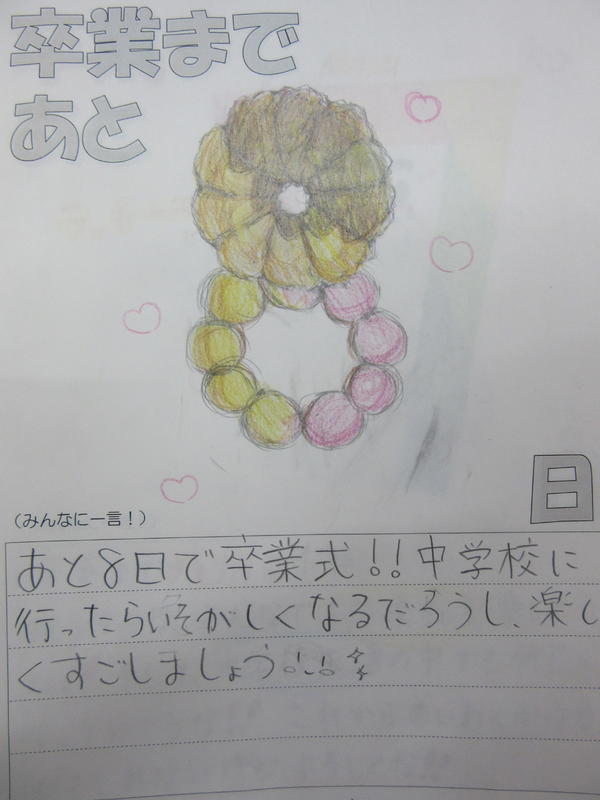 卒業まで
あと
日
(みんなに一言!)
あと8日で卒業式!!中学校に
行ったらいそがしくなるだろうし、楽し
くすごしましょう!!